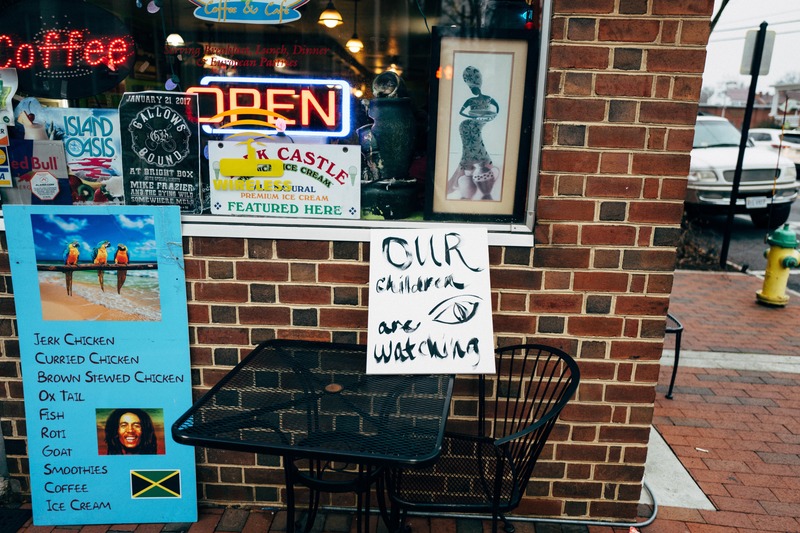 Coffee & Café
Coffee
Serving Breakfast, Lunch, Dinner
& European Pastries
OPEN
ISLAND
OASIS
Red Bull
JANUARY 21 2017
GALLOWS
BOUND
AT BRIGHT BOX
MIKE FRAZIER
AND THE DYING WILD
SOMEWHERE MELS
CASTLE
ICE CREAM
NATURAL
PREMIUM ICE CREAM
FEATURED HERE
WIRELESS
JERK CHICKEN
CURRIED CHICKEN
BROWN STEWED CHICKEN
OX TAIL
FISH
ROTI
GOAT
SMOOTHIES
COFFEE
ICE CREAM
OUR
children
are
watching